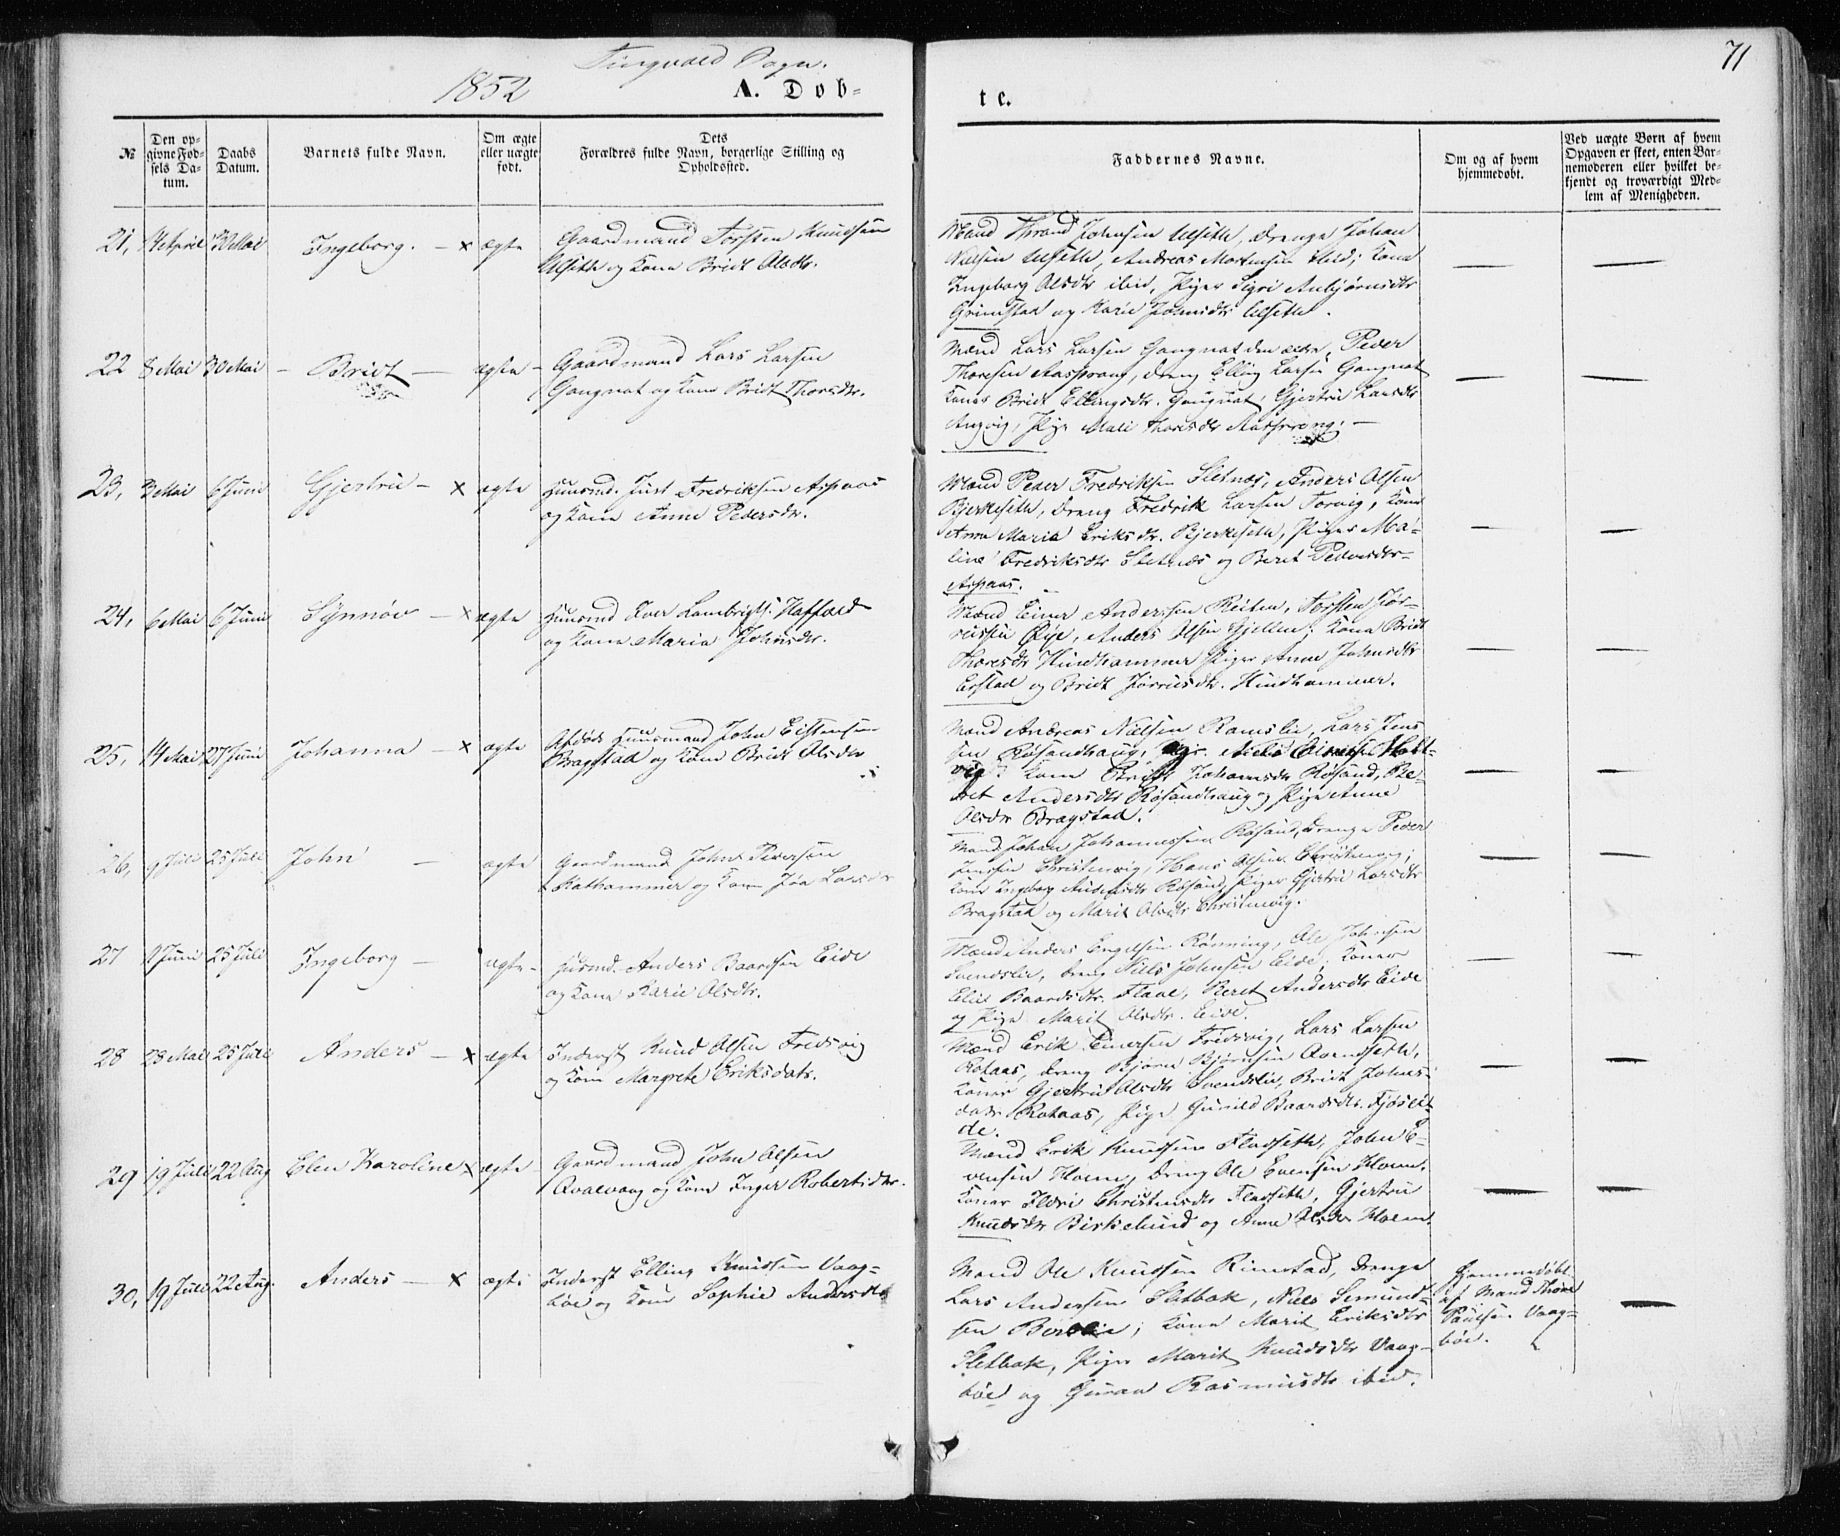 Tingvold Sogn.
71
1852
A. Døb-
te.
№
Den opgivne Fødsels Datum.
Daabs Datum.
Barnets fulde Navn.
Om ægte eller uægte født.
Dets Forældres fulde Navn, borgerlige Stilling og Opholdssted.
Faddernes Navne.
Om og af hvem hjemmedøbt.
Ved uægte Børn af hvem Opgaven er skeet, enten Barnemoderen eller hvilket bekjendt og troværdigt Medlem af Menigheden.
21, 14 April 30 Mai Ingeborg. – x ægte
Gaardmand Torsten Knudsen
Ulseth og Kone Brit Olsdtr.
Mænd Thrond Johnsen Ulseth, Drenge Johan
Nielsen Ulseth, Andreas Mortensen ibid; Kone
Ingeborg Olsdtr ibid, Piger Sigri Anbjørnsdtr
Grimstad og Marie Johnsdtr Ulseth.
22 8 Mai 30 Mai – Berit – ægte –
Gaardmand Lars Larsen
Gangnat og Kone Brit Thoresdtr.
Mænd Lars Larsen Gangnat den ældre, Peder
Thoresen Aasprang, Dreng Elling Larsen Gangnat
Koner Brit Ellingsdtr. Gangnat, Gjertru Larsdtr
Angvig, Pige Mali Thoresdtr Aasprong. –
23, 3 Mai 6 Juni Gjertru – x ægte
Huusmd. Just Fredriksen Aspaas
og Kone Anne Pedersdtr.
Mænd Peder Fredriksen Sletnæs, Anders Olsen
Bjerkeseth, Dreng Fredrik Larsen Torvig, Kone
Anne Maria Eriksdtr. Bjerkeseth, Piger Ma-
line Fredriksdtr Sletnæs og Beret Pedersdtr
Aspaas.
24, 6 Mai 6 Juni Synnøv – x ægte
Huusmd Iver Lambrigts. Haffald
og Kone Maria Johnsdtr.
Mænd Einer Anderssen Reiten, Torsten Jør-
Øye, Anders Olsen Gjellen; Kone Brit
Thoresdtr Hindhammer Piger Anne Johnsdtr
og Brit Hindhammer.
25, 14 Mai 27 Juni Johanna – x ægte
Afdøde Huusmand John Eistensen
Bragstad og Kone Brit Olsdtr
Mænd Andreas Nielsen Ramslie, Lars Jens
sen Røsandhaug, Niels Einersen Holt-
vig; Kone Brit Johannesdtr Røsand, Be-
ret Andersdtr Røsandhaug og Pige Anne
Olsdtr Bragstad.
26, 9 Juli 25 Juli John – ægte
Gaardmand John Pedersen
Kathammer og Kone Larsdtr
Mænd Johan Johannessen Røsand, Drenge Peder
Jenssen Christenvig, Hans Olsen Christenvig;
Kone Ingeborg Andersdtr Røsand, Piger Gjertru Larsdtr
Bragstad og Marit Olsdtr Christenvig.
27 9 Juni 25 Juli Ingeborg – ægte –
Husmd. Anders Baardsen Eide
og Kone Marie Olsdtr.
Mænd Anders Engelsen Rønning, Ole Johnsen
Svendslie, Dreng Niels Johnsen Eide, Koner
Baardsdtr. Flaae, Beret Andersdtr Eide
og Pige Marit Olsdtr. Eide.
28 23 Mai 25 Juli Anders – x ægte
Inderst Knud Olsen Fredsvig
og Kone Margrete Eriksdatr.
Mænd Erik Einersen Fredsvig, Lars Larsen
Rotaas, Dreng Bjørn Bjørnsen Avendseth,
Koner Gjertru Olsdtr Svendslie, Brit Johns-
datr Rotaas, Pige Gunild Baardsdtr. Fjøsei-
de.
29 19 Juli 22 Aug Elen Karoline x ægte
Gaardmand John Olsen
Avalvaag og Kone Inger Robertsdtr.
Mænd Erik Knudsen Fladseth, John E-
vensen Hoem, Dreng Ole Evensen Hoem.
Koner Ildri Christensdtr Fladseth, Gjertru
Knudsdtr Birkelund og Anne Olsdtr Hoem.
30, 19 Juli 22 Aug. Anders – x ægte
Inderst Elling Knudsen Vaag-
bøe og Kone Sophie Andersdtr
Mænd Ole Knudsen Rimstad, Drenge
Lars Andersen Sletbak, Niels Simund-
sen; Kone Marit Eriksdtr
Sletbak, Piger Marit Knudsdtr Vaag-
bøe og Guran Rasmusdtr ibid.
Hjemmedøbt
af Mand Thore
Paulsen Vaag-
bøe.